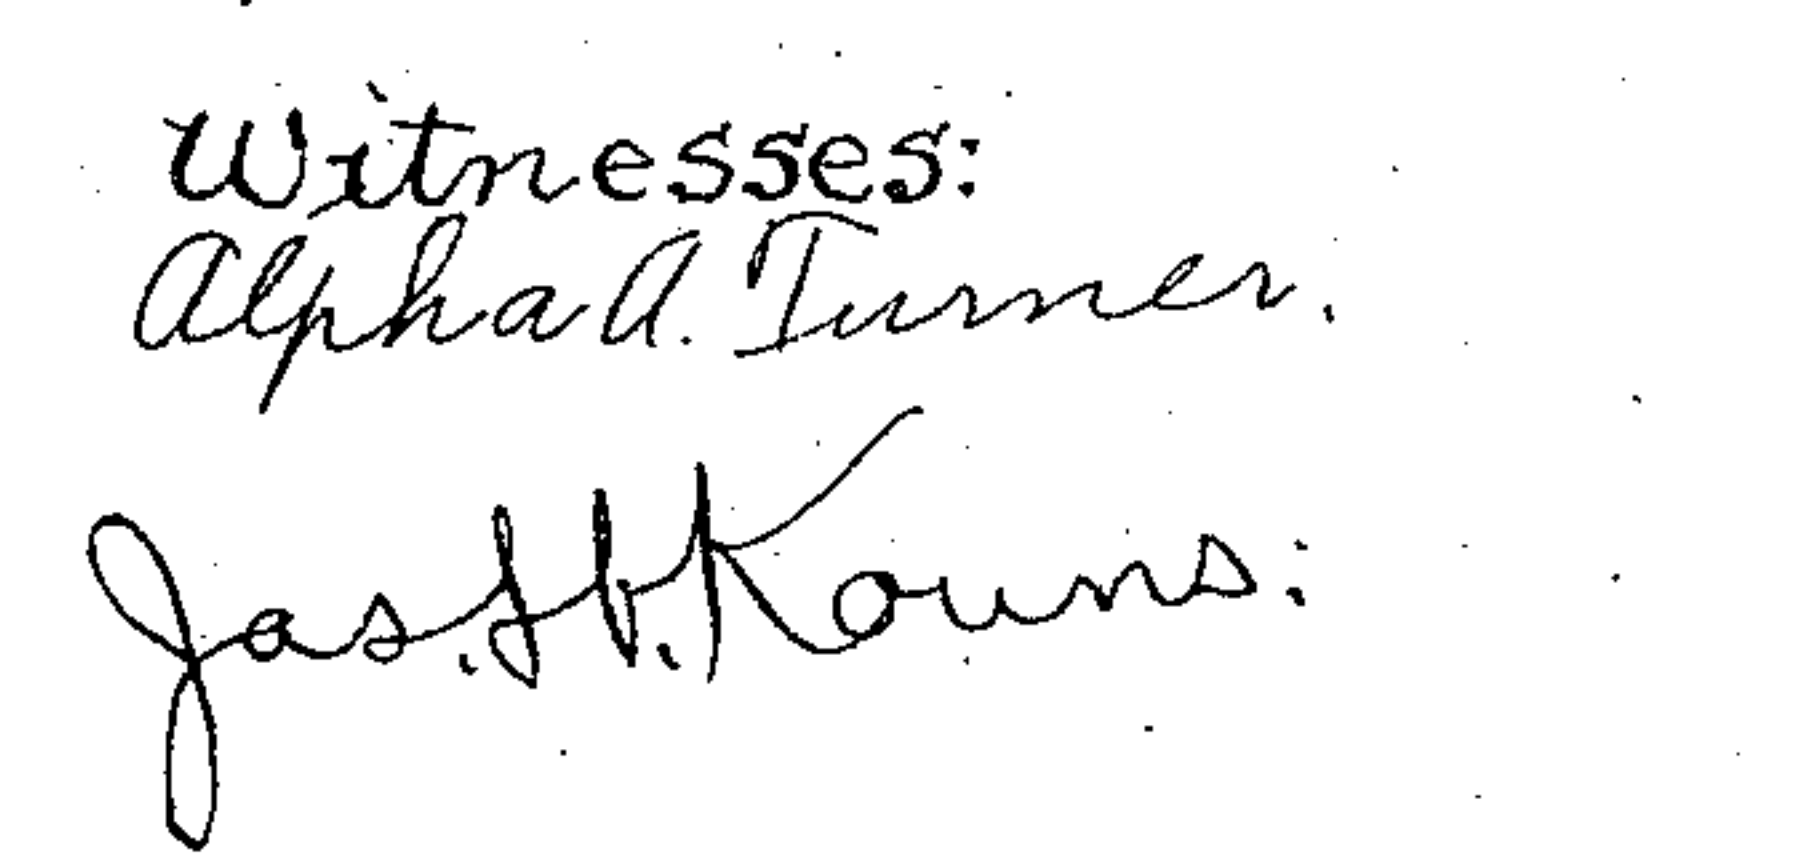 Witnesses:
Alpha A. Turner.
Jas. H. Kouns: